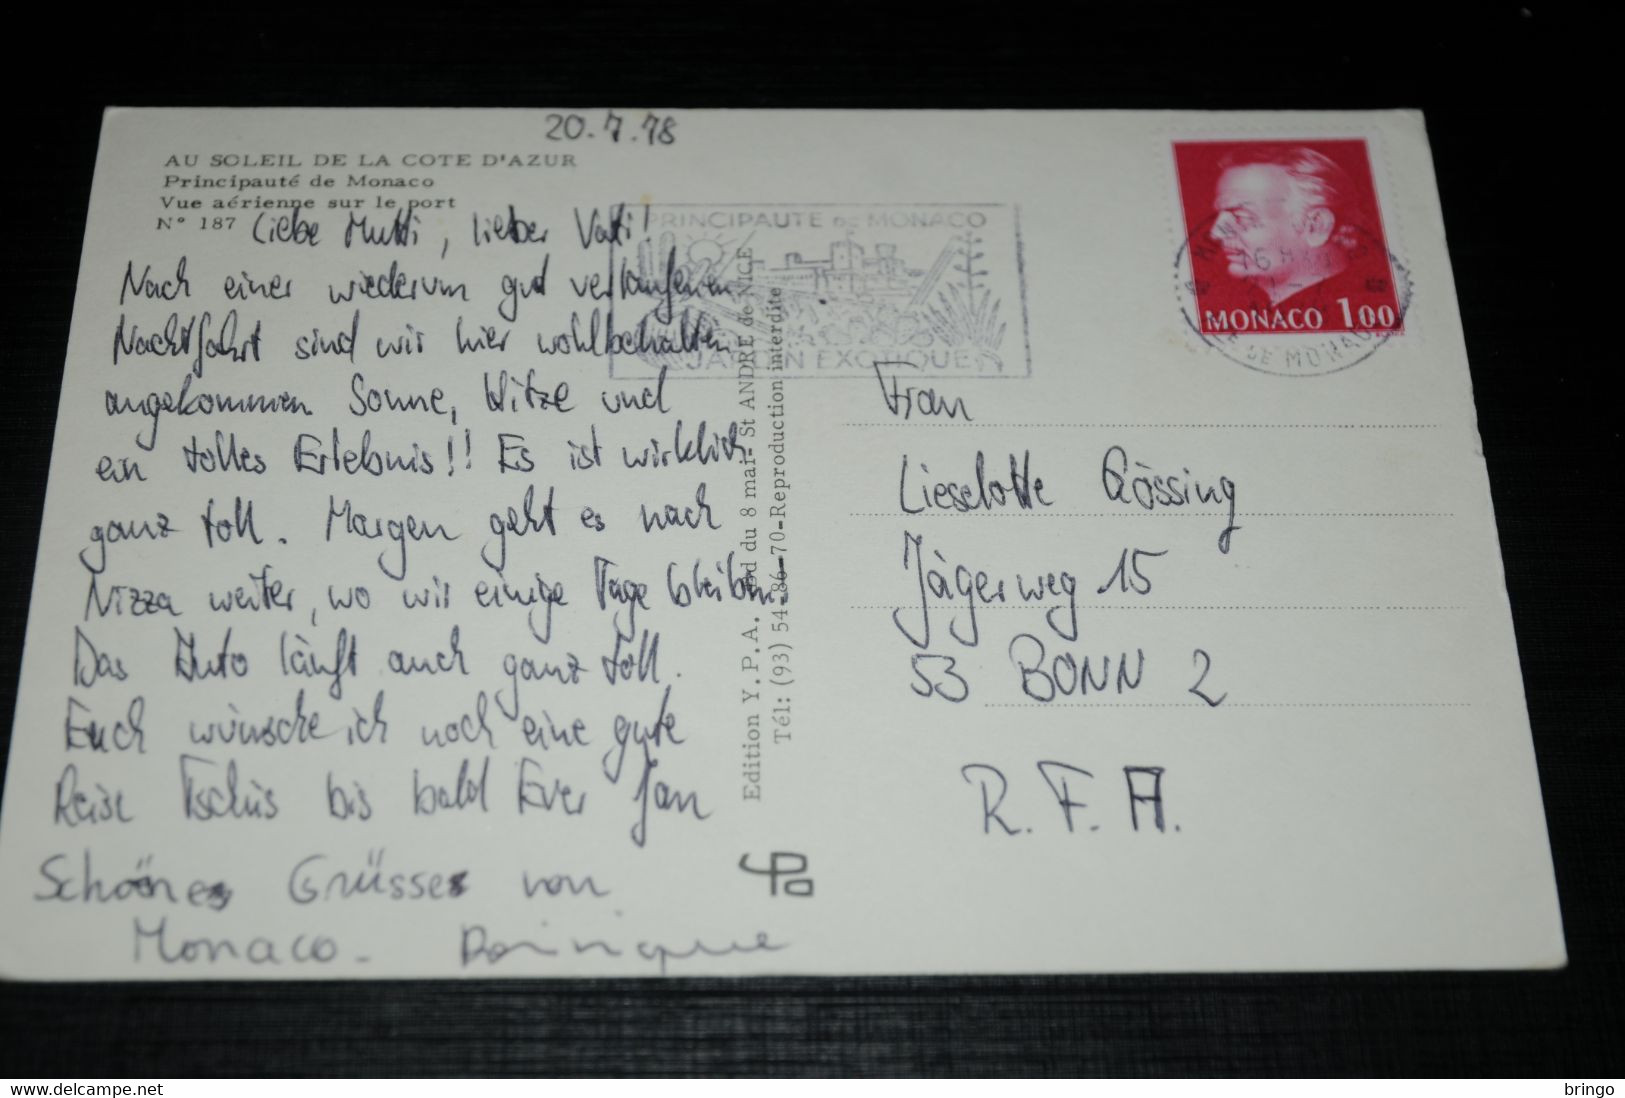 20.7.78
AU SOLEIL DE LA COTE D'AZUR
Principauté de Monaco
Vue aérienne sur le port
N° 187
Liebe Mutti, lieber Vati!
Nach einer wiederum gut verlaufenen
Nachtfahrt sind wir hier wohlbehalten
angekommen. Sonne, Hitze und
ein tolles Erlebnis!! Es ist wirklich
ganz toll. Morgen geht es nach
Nizza weiter, wo wir einige Tage bleiben.
Das Auto läuft auch ganz toll.
Euch wünsche ich noch eine gute
Reise Tschüs bis bald Euer Jan
Schönes Grüsses von
Monaco - Dominique
PRINCIPAUTE DE MONACO
JARDIN EXOTIQUE
Edition Y.P.A. Bd du 8 mai - St ANDRE de NICE
Tél: (93) 54-86-70-Reproduction interdite
MONACO 1.00
Frau
Lieselotte Rössing
Jägerweg 15
53 BONN 2
R.F.A.
delcampe.net
bringo